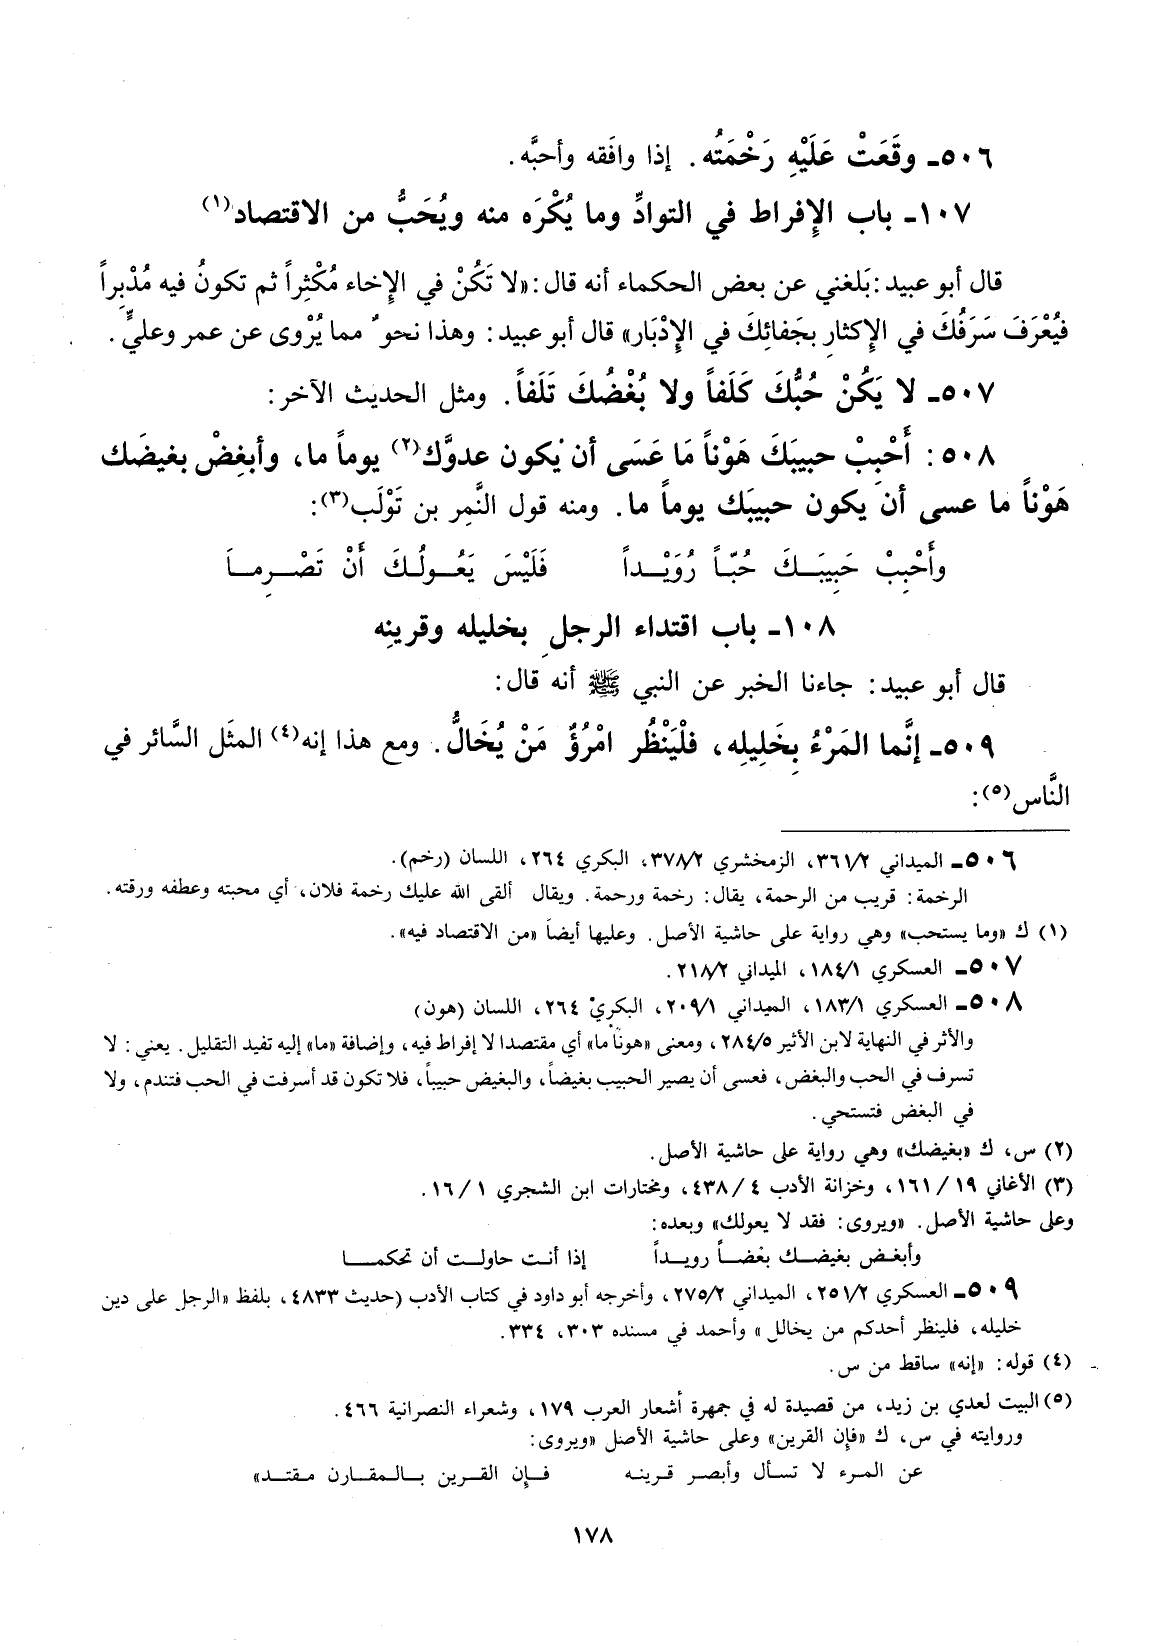 ٥٠٦ـ وقَعَتْ عَلَيْهِ رَخْمَتُه. إذا وافَقه وأحبَّه.
١٠٧ـ باب الإِفراط في التوادِّ وما يُكْرَه منه ويُحَبُّ من الاقتصاد(١)
قال أبو عبيد: بَلغني عن بعض الحكماء أنه قال: «لا تَكُنْ في الإِخاء مُكْثِراً ثم تكونُ فيه مُدْبِراً
فيُعْرَفَ سَرَفُكَ في الإكثارِ بجَفائِكَ في الإِدْبَار» قال أبو عبيد: وهذا نحوٌ مما يُرْوى عن عمر وعليٍّ.
٥٠٧ـ لا يَكُنْ حُبُّكَ كَلَفاً ولا بُغْضُكَ تَلَفاً. ومثل الحديث الآخر:
٥٠٨: أَحْبِبْ حبيبَكَ هَوْناً مَا عَسَى أن يْكون عدوَّك(٢) يوماً ما، وأبغِضْ بغيضَك
هَوْناً ما عسى أن يكون حبيبَك يوماً ما. ومنه قول النَّمِر بن تَوْلَب(٣):
وأَحْبِبْ حَبِيبَـكَ حُبّـاً رُوَيْـداً فَلَيْسَ يَعُولُـكَ أَنْ تَصْـرِمـاَ
١٠٨ـ باب اقتداء الرجلِ بخليله وقرينِه
قال أبو عبيد: جاءنا الخبر عن النبي ﷺ أنه قال:
٥٠٩ـ إنَّما المَرْءُ بِخَلِيلِه، فلْيَنْظُر امْرُؤٌ مَنْ يُخَالُّ. ومع هذا إنه(٤) المثَل السَّائر في
النَّاس(٥):
٥٠٦ـ الميداني ٣٦١/٢، الزمخشري ٣٧٨/٢، البكري ٢٦٤، اللسان (رخم).
الرخمة: قريب من الرحمة، يقال: رخمة ورحمة. ويقال ألقى الله عليك رخمة فلان، أي محبته وعطفه ورقته.
(١) ك «وما يستحب» وهي رواية على حاشية الأصل. وعليها أيضاً «من الاقتصاد فيه».
٥٠٧ـ العسكري ١٨٤/١، الميداني ٢١٨/٢.
٥٠٨ـ العسكري ١٨٣/١، الميداني ٢٠٩/١، البكري ٢٦٤، اللسان (هون)
والأثر في النهاية لابن الأثير ٢٨٤/٥، ومعنى «هوناً ما» أي مقتصدا لا إفراط فيه، وإضافة «ما» إليه تفيد التقليل. يعني: لا
تسرف في الحب والبغض، فعسى أن يصير الحبيب بغيضاً، والبغيض حبيباً، فلا تكون قد أسرفت في الحب فتندم، ولا
في البغض فتستحي.
(٢) س، ك «بغيضك» وهي رواية على حاشية الأصل.
(٣) الأغاني ١٩/١٦١، وخزانة الأدب ٤/٤٣٨، ومختارات ابن الشجري ١/١٦.
وعلى حاشية الأصل. «ويروى: فقد لا يعولك» وبعده:
وأبغـض بغيضـك بغضـاً رويـداً إذا أنـت حاولـت أن تحكمـا
٥٠٩ـ العسكري ٢٥١/٢، الميداني ٢٧٥/٢، وأخرجه أبو داود في كتاب الأدب (حديث ٤٨٣٣، بلفظ «الرجل على دين
خليله، فلينظر أحدكم من يخالل» وأحمد في مسنده ٣٠٣، ٣٣٤.
(٤) قوله: «إنه» ساقط من س.
(٥) البيت لعدي بن زيد، من قصيدة له في جمهرة أشعار العرب ١٧٩، وشعراء النصرانية ٤٦٦.
وروايته في س، ك «فإن القرين» وعلى حاشية الأصل «ويروى:
عن المرء لا تسأل وأبصر قرينـه فـإن القـرين بـالمقـارن مقتـد»
١٧٨